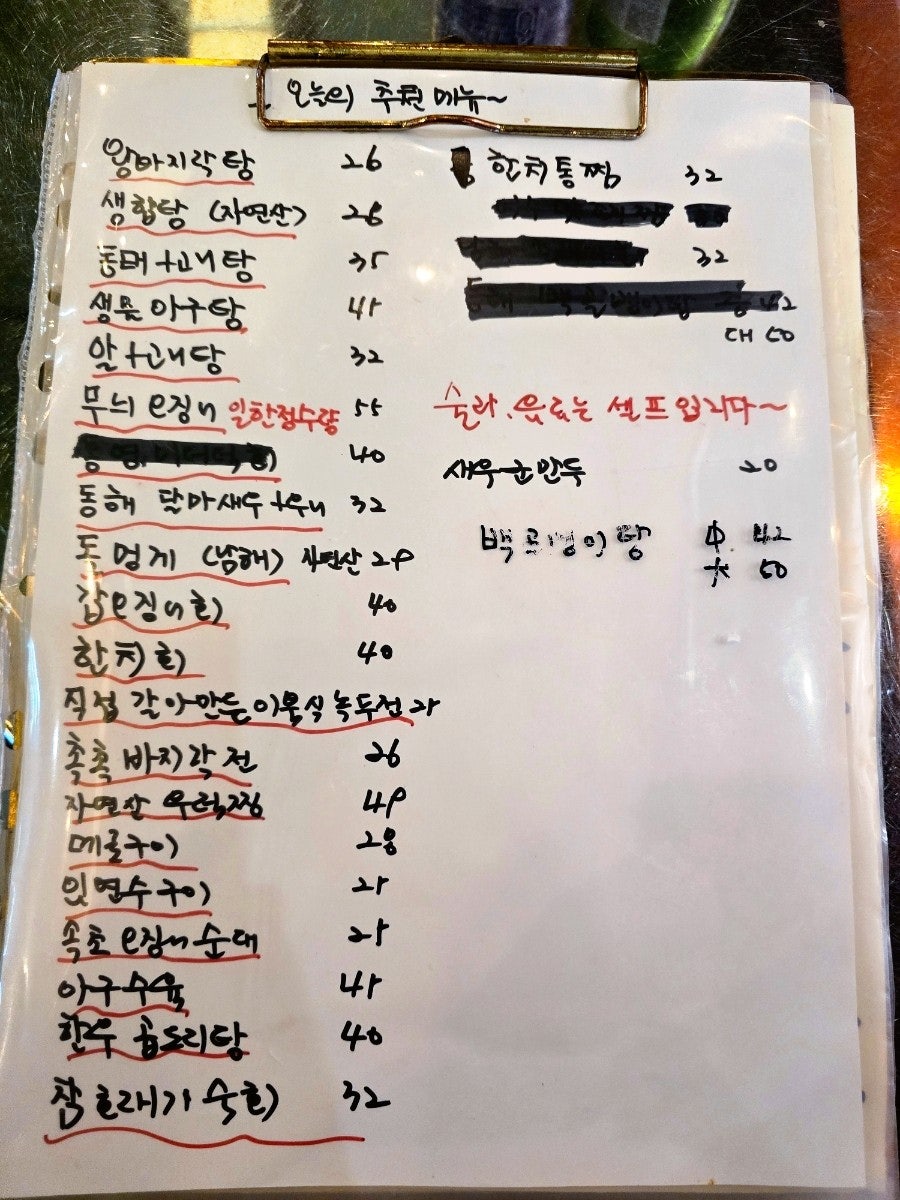 오늘의 추천 메뉴~
왕바지락탕 26
생합탕 (자연산) 26
동태+고니탕 35
생물 아구탕 45
알+고니탕 32
무늬 오징어 일한정수량 55
40
동해 달마새우+우니 32
돌멍게 (남해) 자연산 29
갑오징어회 40
한치회 40
직접 갈아만든 이북식 녹두전 25
촉촉 바지락전 26
자연산 우럭찜 49
메로구이 28
임연수구이 25
속초 오징어 순대 25
아구수육 45
한우 곱도리탕 40
참호래기 숙회 32
한치통찜 32
32
42
대 50
술과, 음료는 셀프입니다~
새우군만두 20
백고벵이탕 中 42
大 50